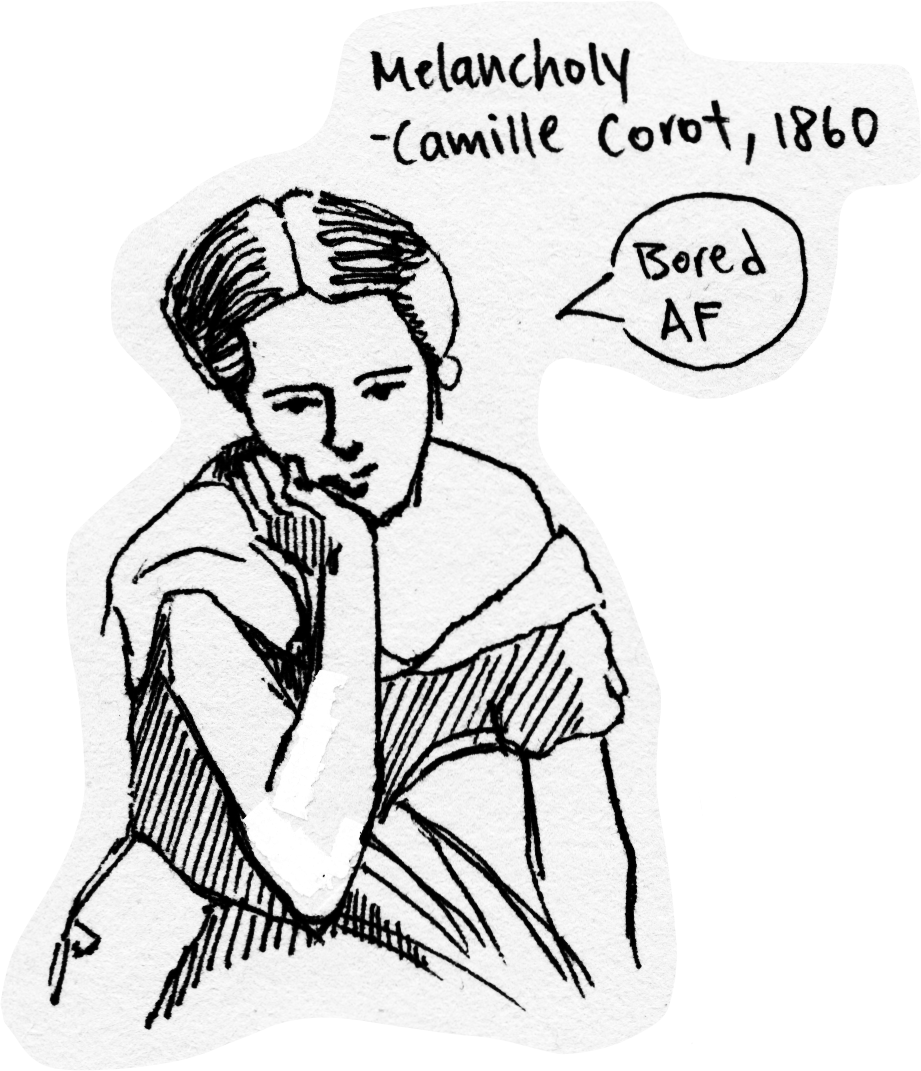 Melancholy
-Camille Corot, 1860
Bored
AF